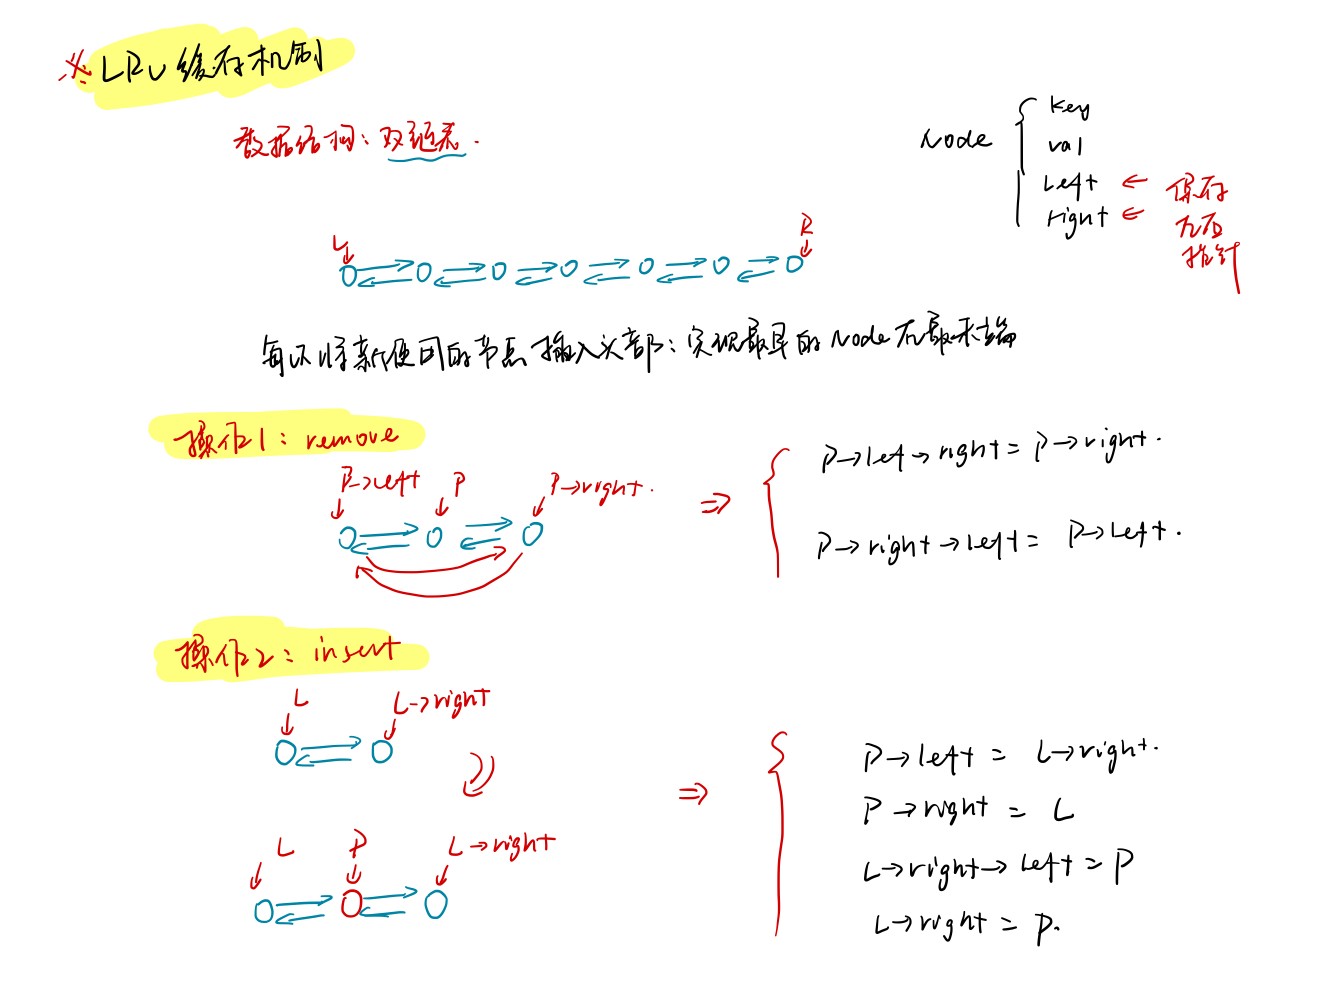 ※ LRU 缓存机制
数据结构：双链表.
Node
key
val
left ← 保存
right ← 左右
指针
L
R
每次将新使用的节点插入头部：实现最早的Node在最末端
操作1：remove
P→left P P→right.
⇒
P→left→right = P→right.
P→right→left = P→left.
操作2：insert
L L→right
L P L→right
⇒
P→left = L→right.
P→right = L
L→right→left = P
L→right = P.